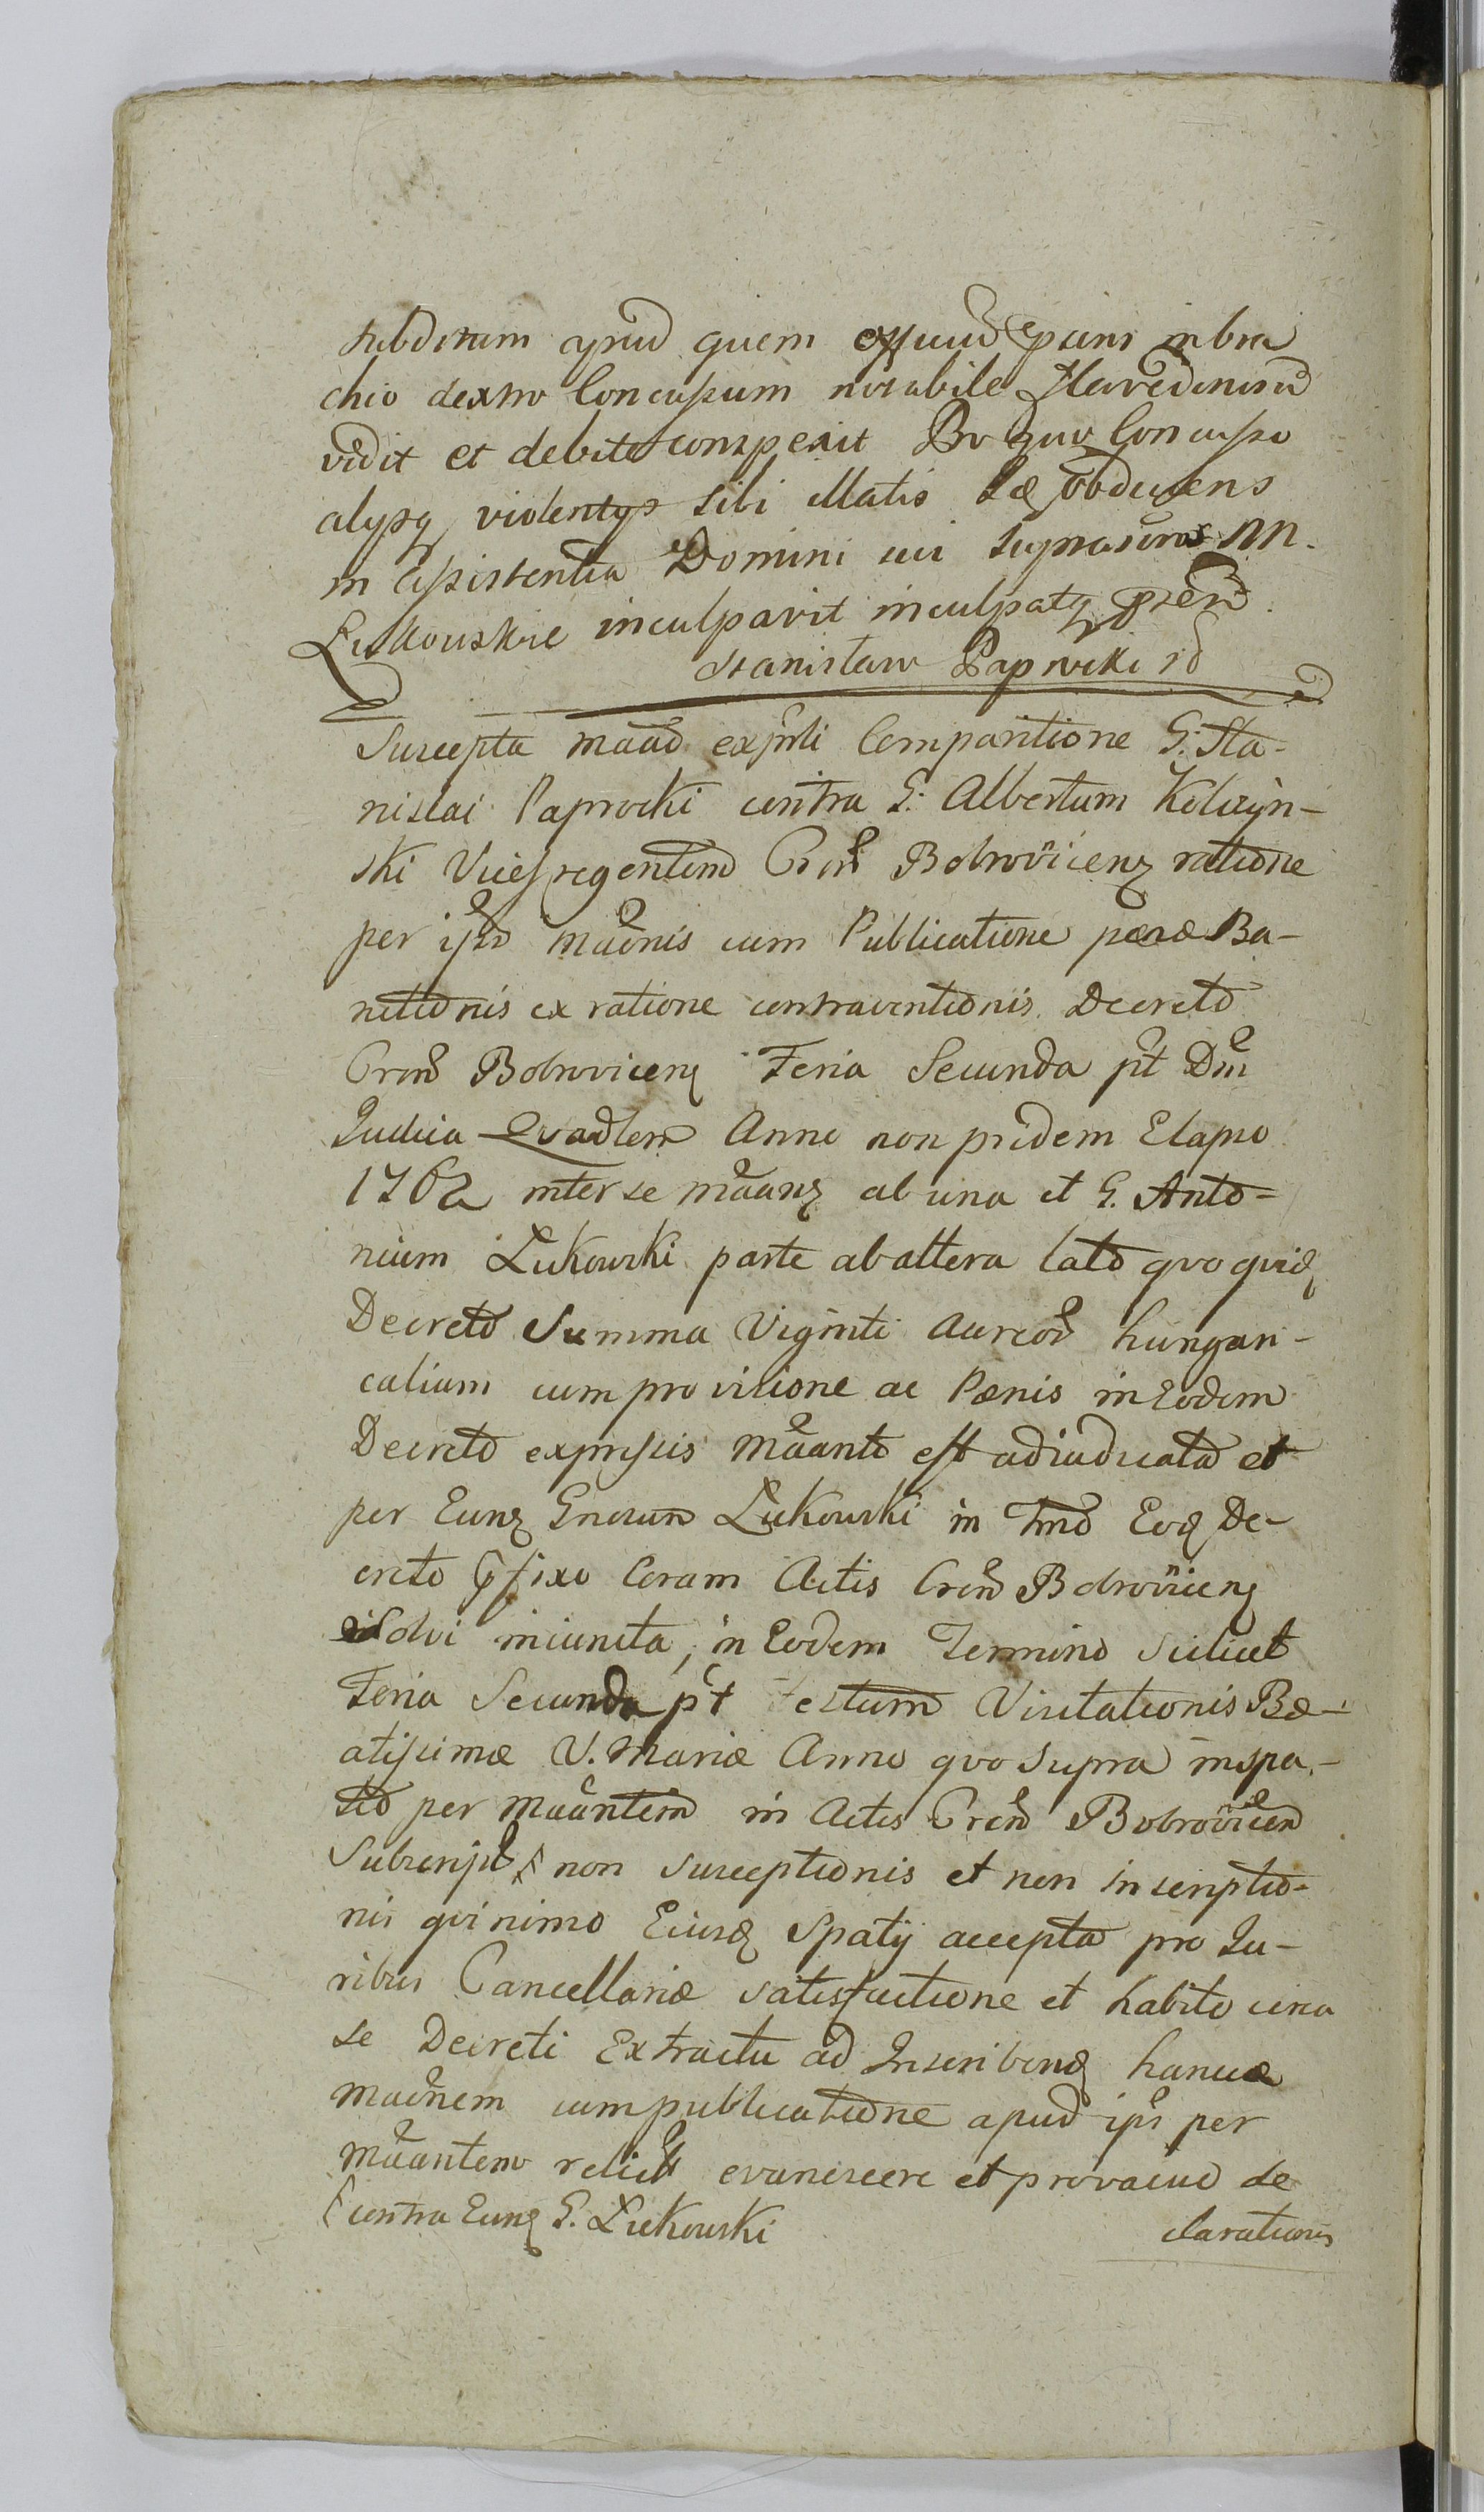 subditum apud quem Officiū pñns in bra
chio dextro Concussum notabile flavedinosū
vidit et debite comperit Pro quo Concusso
alysq violentys sibi illatis Se obducens
in assistentia Domini sui suprascrõs NN.
Łukowskie inculpavit inculpatq p̃ns
Stanisław Paprocki sd
Suscepta Maād. exp̃ti Comparitione G: Sta-
nislai Paprocki contra G: Albertum Kolczyn-
ski Vicesregentem Cren̄ Bobrowicenq ratione
per ip̃m Maõnis cum Publicatione pænæ Ba-
nitionis ex ratione contraventionis Decreto
Cren̄ Bobrovicenq Feria Secunda p̃t Dm̃
Iudica Qvadlem Anno non pridem Elapso
1762 inter se Mãanq ab una et G. Anto-
nium Łukowski parte ab altera lato qvo qvid
Decreto Summa Viginti Aureor̄ hungari-
calium cum provisione ac Pænis in Eodem
Decreto expressis Mãanti est adiudicata et
per Eunq Gnosum Łukowski in Tm̃o Eoq De-
creto p̃fixo Coram Actis Cren̄ Bobroviceng
solvi iniuncta, in Eodem Termino scilicet
Feria Secunda p̃t Festum Visitationis Be-
atissimæ V. Mariæ Anno qvo supra inspa-
tio per Mãantem in Actis Cren̄ Bobrovicen
Subscript non susceptionis et non inscriptio-
nis qvinimo Eiusq Spatij accepta pro Iu-
ribus Cancellariæ satisfactione et habito circa
se Decreti Extractu ad Inscribend hancce
Maõnem cum publicatione apud ip̃s per
Mãantem relict evanescere et provacuo de
contra Eunq G. Łukowski
clarationis